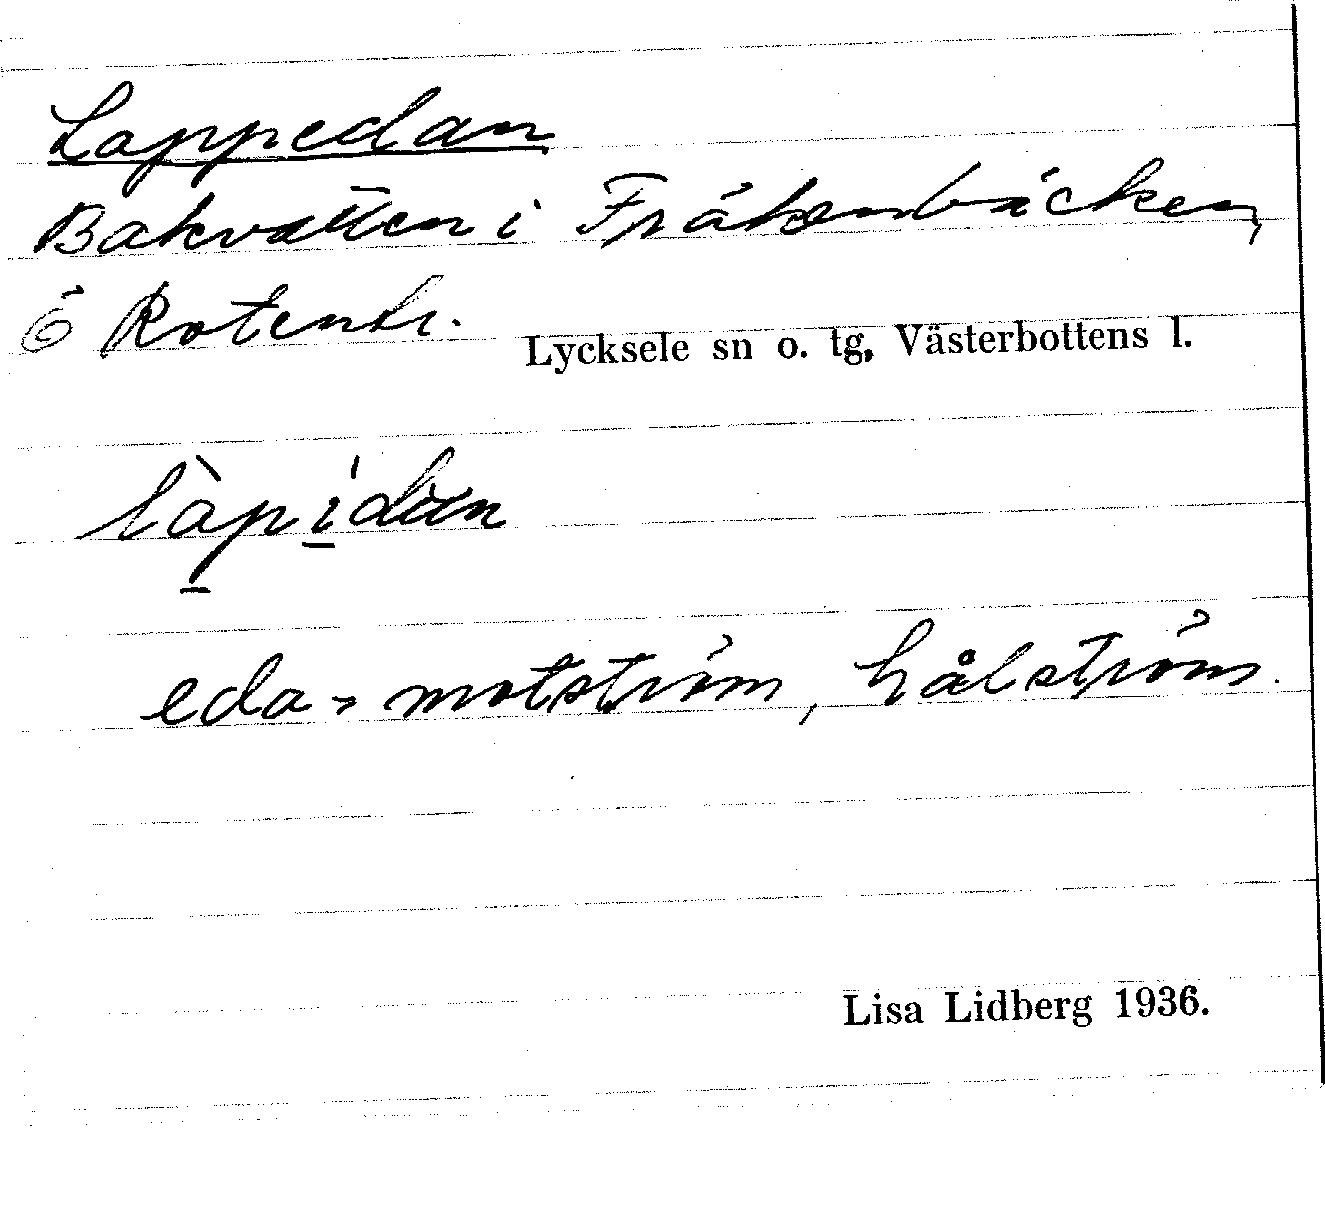 Lappedan
Bakvatten i Fräkenbäcken,
Ö Rotentr.
Lycksele sn o. tg, Västerbottens l.
eda = motström, hålström.
Lisa Lidberg 1936.